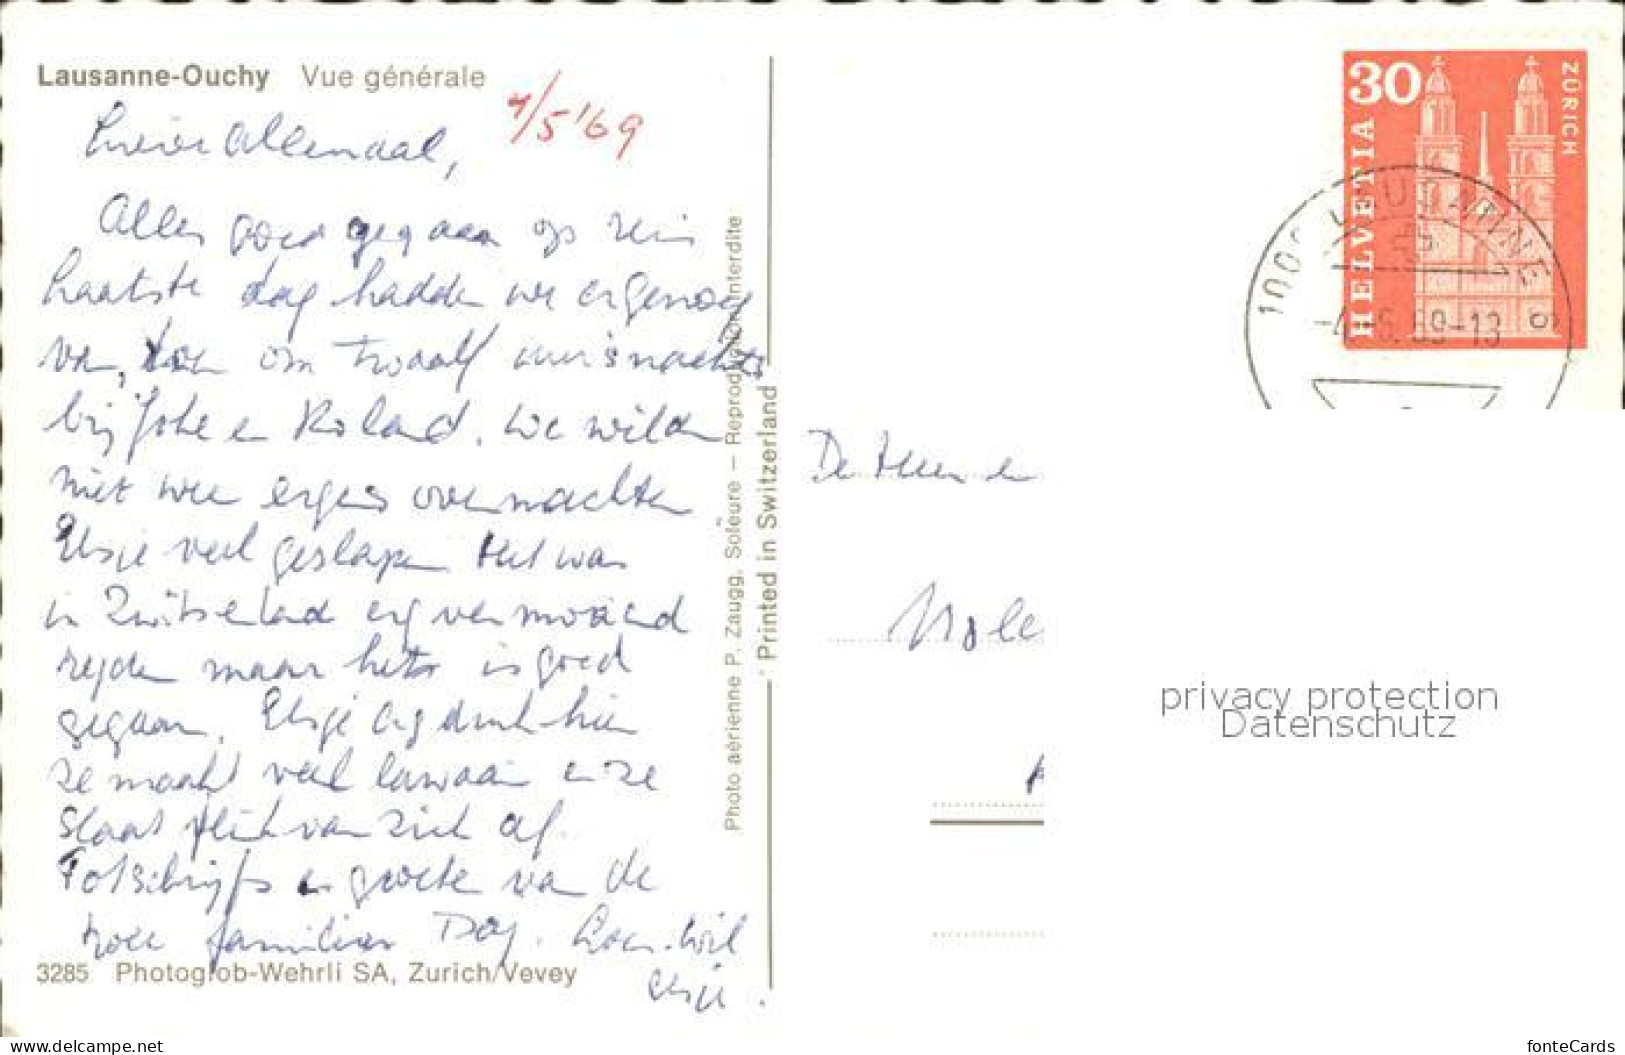 Lausanne-Ouchy Vue générale
7/5 '69
Lieve Allemaal,
Alles goed gegaan op reis
Laatste dag hadden we er genoeg
van, om twaalf uur 's nachts
bij Joke en Roland. We wilden
niet weer ergens overnachten
Elsje veel geslapen Het was
in Zwitserland erg vermoeiend
rijden maar het is goed
gegaan. Elsje erg druk hier
ze maakt veel lawaai en ze
slaat flink van zich af.
Tot schrijfs en groeten van de
twee families Dag.
Elsje.
3285 Photoglob-Wehrli SA, Zurich/Vevey
Photo aérienne P. Zaugg, Soleure — Reproduction interdite
Printed in Switzerland
30
HELVETIA
ZÜRICH
LAUSANNE
69-13
De Heer en
privacy protection
Datenschutz
www.delcampe.net
fonteCards